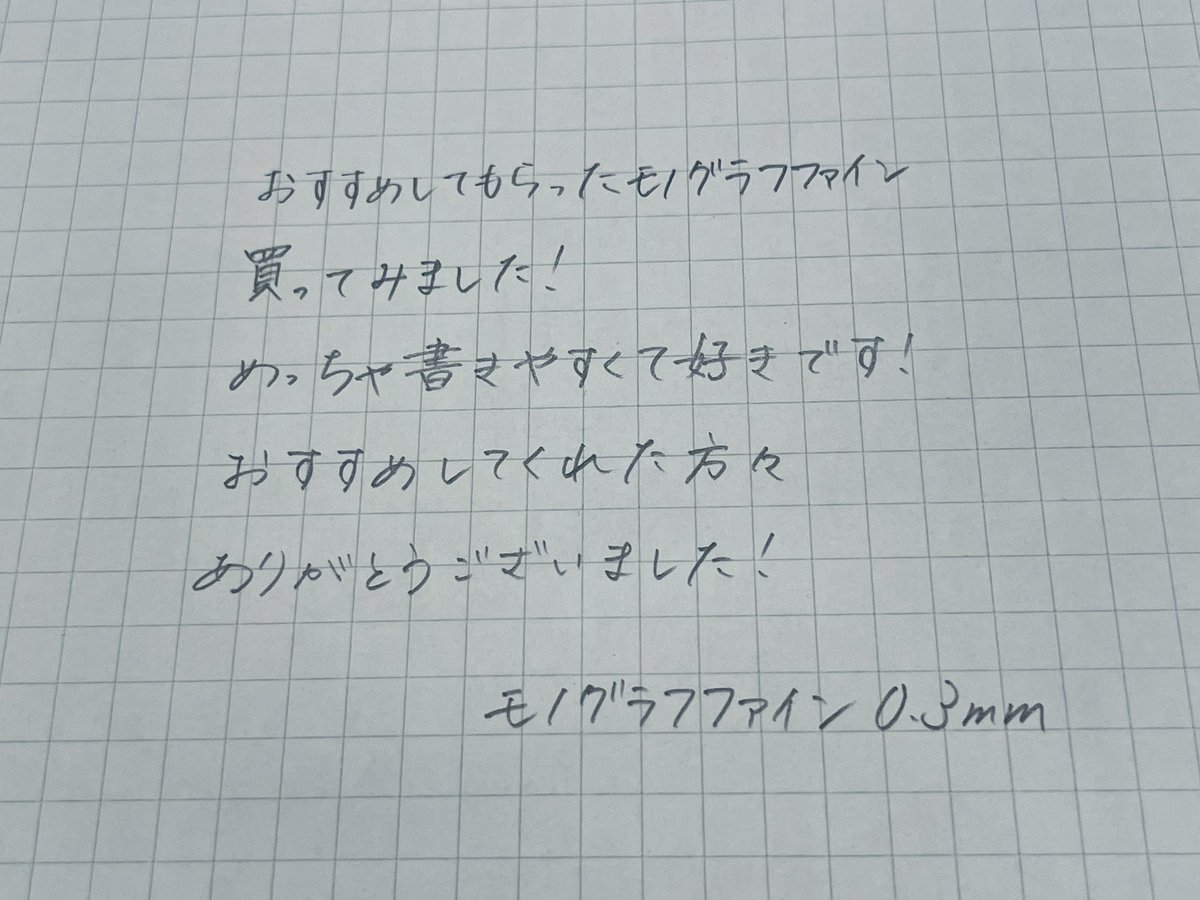 おすすめしてもらったモノグラフファイン
買ってみました!
めっちゃ書きやすくて好きです!
おすすめしてくれた方々
ありがとうございました!
モノグラフファイン 0.3mm